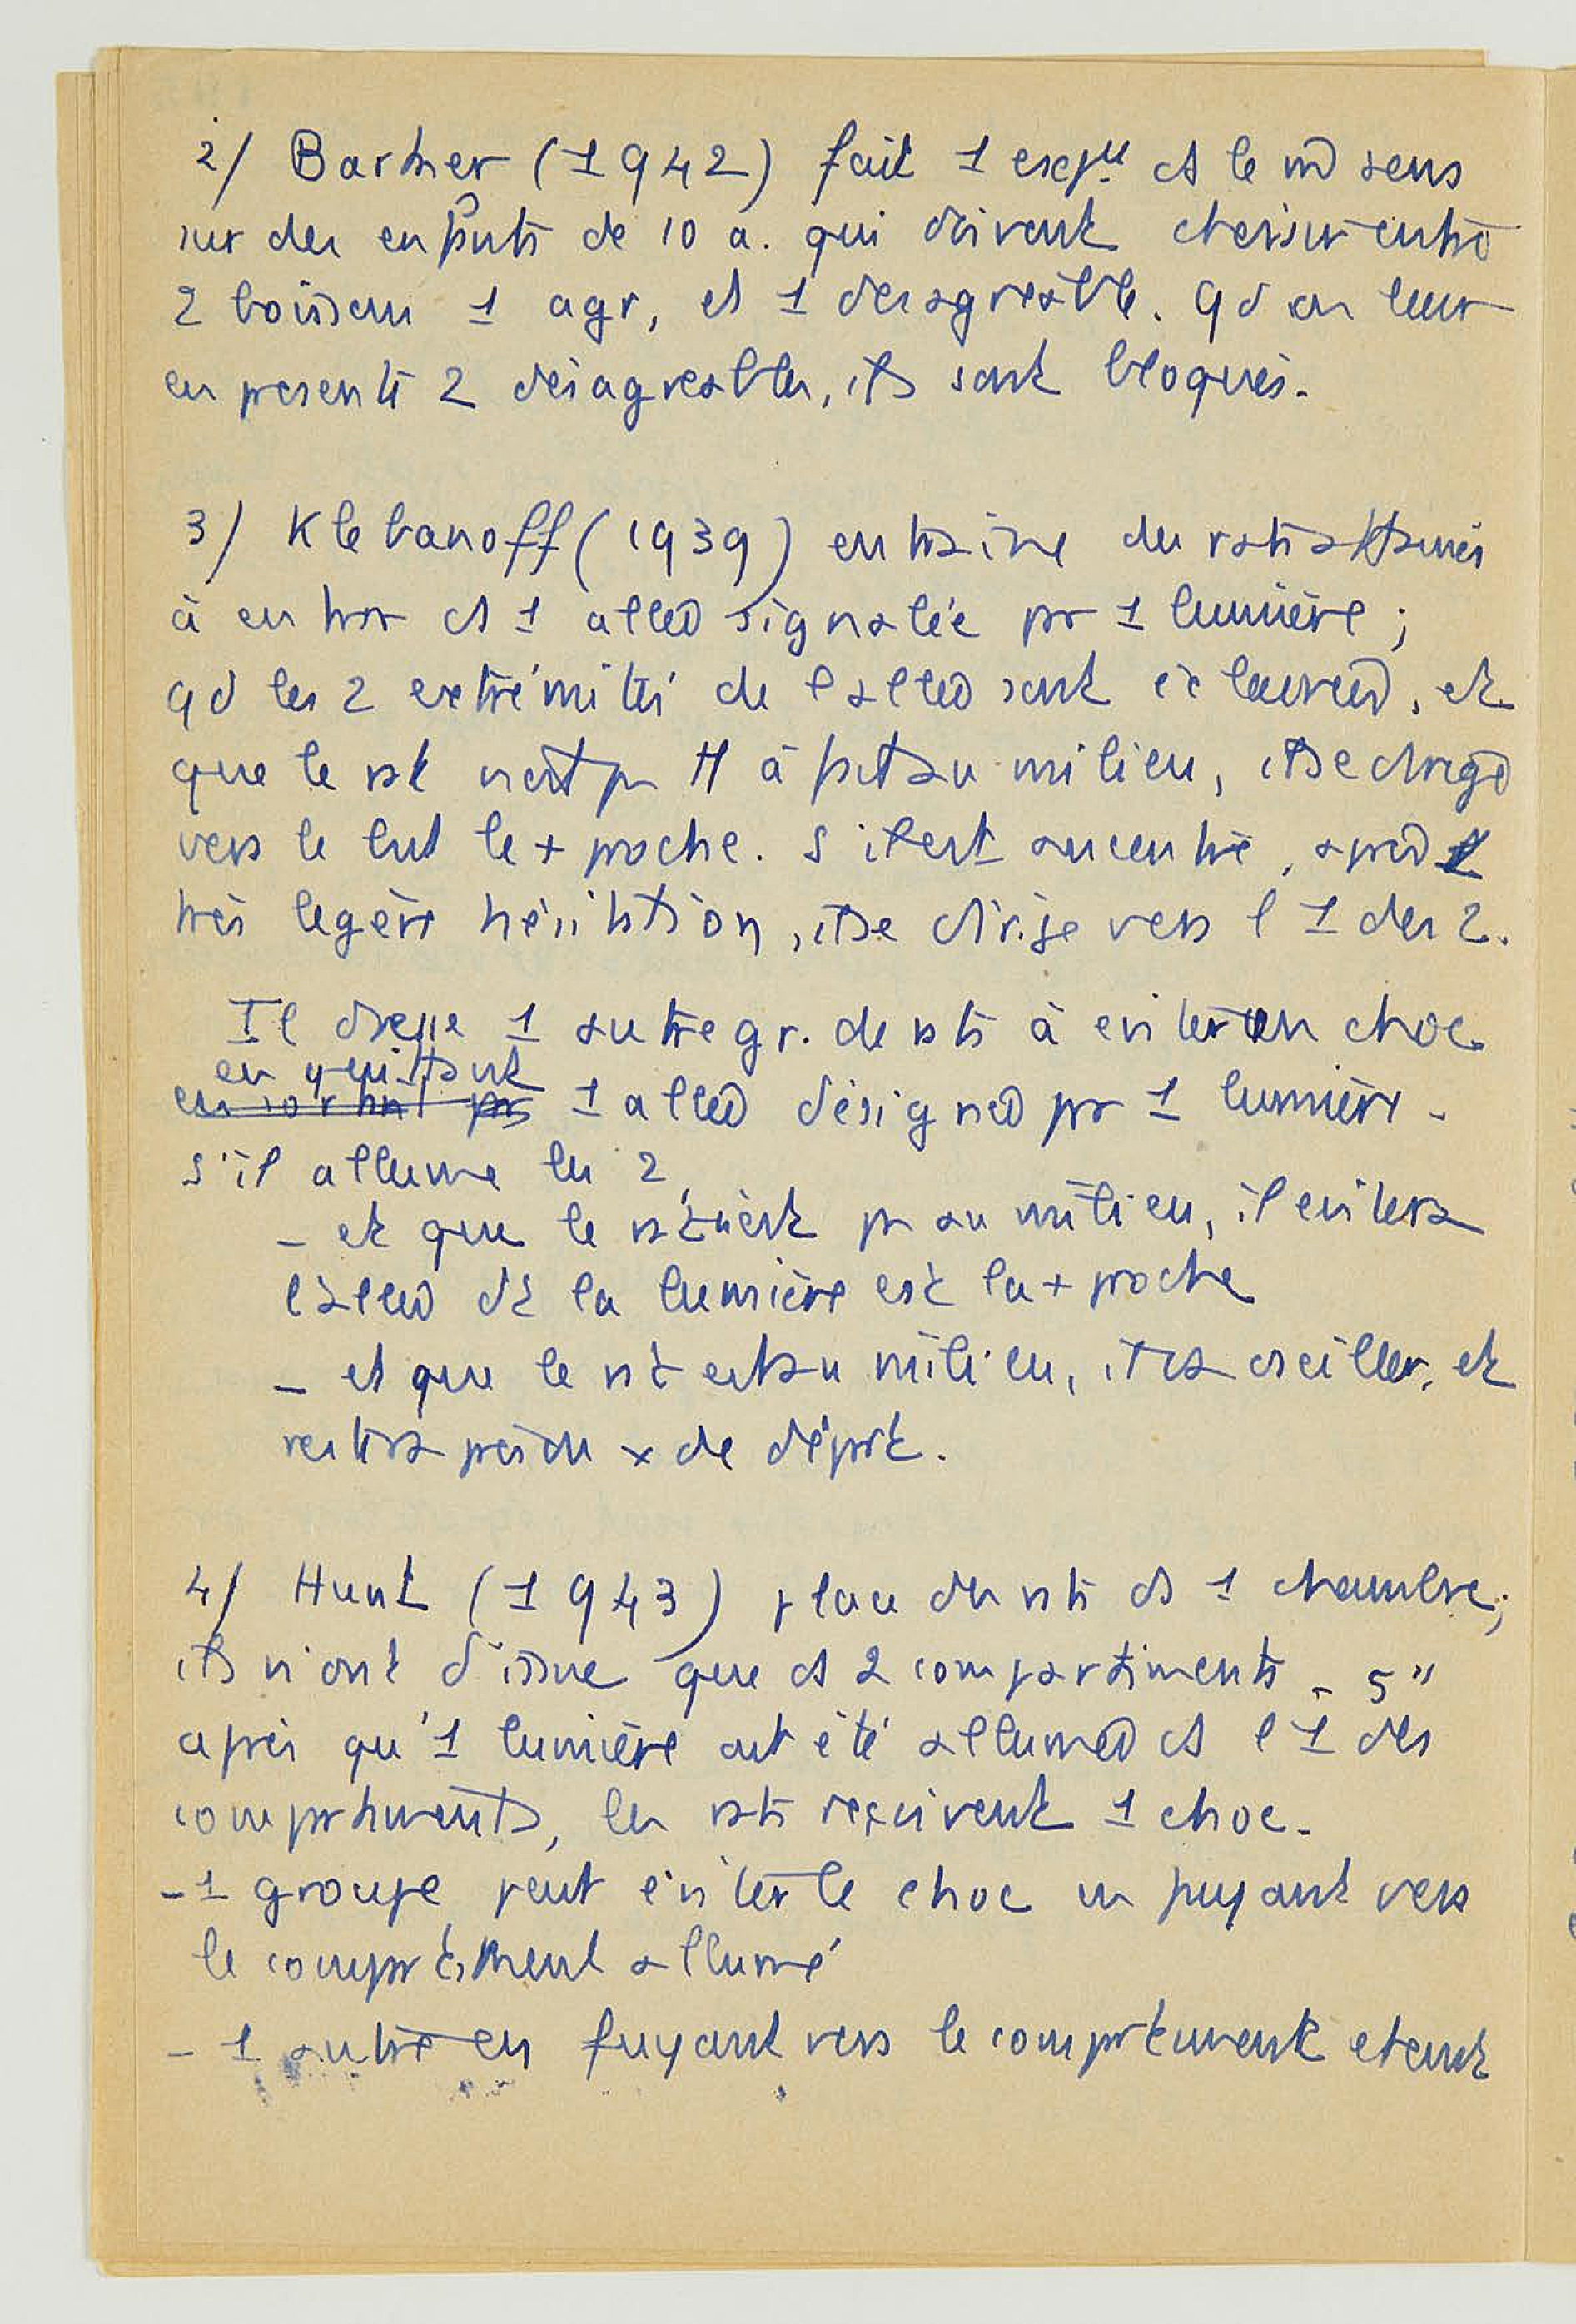 2/ Barker (1942) fait 1 expér. ds le m̂ sens
sur des enfants de 10 a. qui doivent choisir entre
2 boissons 1 agr, et 1 désagréable. qd on leur
en présente 2 désagréables, ils sont bloqués.
3/ Klebanoff (1939) entraîne des rats affamés
à entrer ds 1 allée signalée par 1 lumière ;
qd les 2 extrémités de l'allée sont éclairées, et
que le rat n'est pas à fait au milieu, il se dirige
vers le but le + proche. S'il est au centre, après 1
très légère hésitation, il se dirige vers l'1 des 2.
Il dresse 1 autre gr. de rats à éviter un choc
en quittant
1 allée désignée par 1 lumière.
s'il allume les 2,
- et que le rat n'est pas au milieu, il évitera
l'allée dt la lumière est la + proche
- et que le rat est au milieu, il va osciller, et
restera près du x de départ.
4/ Hunt (1943) place des rats ds 1 chambre ;
ils n'ont d'issue que ds 2 compartiments - 5"
après qu'1 lumière ait été allumée ds l'1 des
compartiments, les rats reçoivent 1 choc.
- 1 groupe peut éviter le choc en fuyant vers
le compartiment allumé
- 1 autre en fuyant vers le compartiment éteint